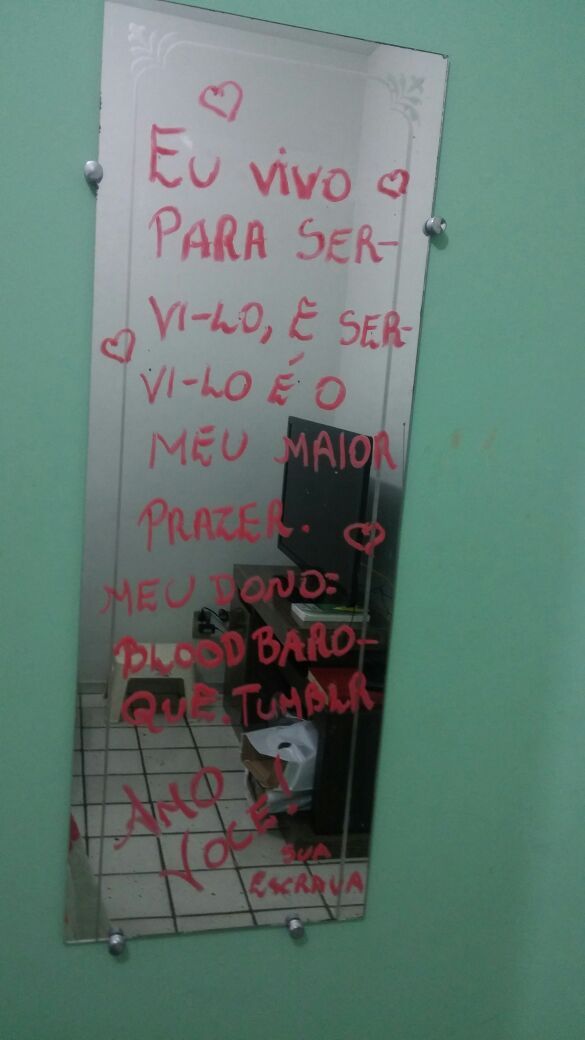 EU VIVO
PARA SER-
VI-LO, E SER-
VI-LO É O
MEU MAIOR
PRAZER.
MEU DONO:
BLOODBARO-
QUE.TUMBLR
AMO
VOCE!
SUA
ESCRAVA